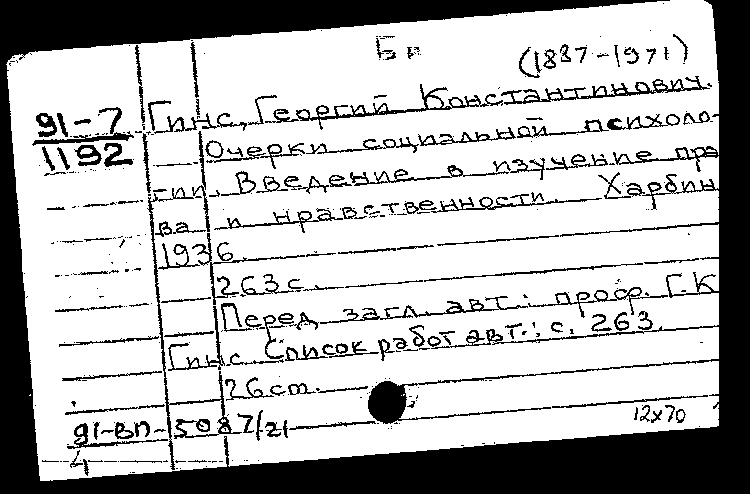 Бп
(1887-1971)
91-7
1192
Гинс, Георгий Константинович.
Очерки социальной психоло-
гии. Введение в изучение пра
ва и нравственности. Харбин
1936.
263 с.
Перед загл. авт.: проф. Г.К
Гинс. Список работ авт.: с. 263.
26 cm.
91-ВП-5087/21
4
12х70